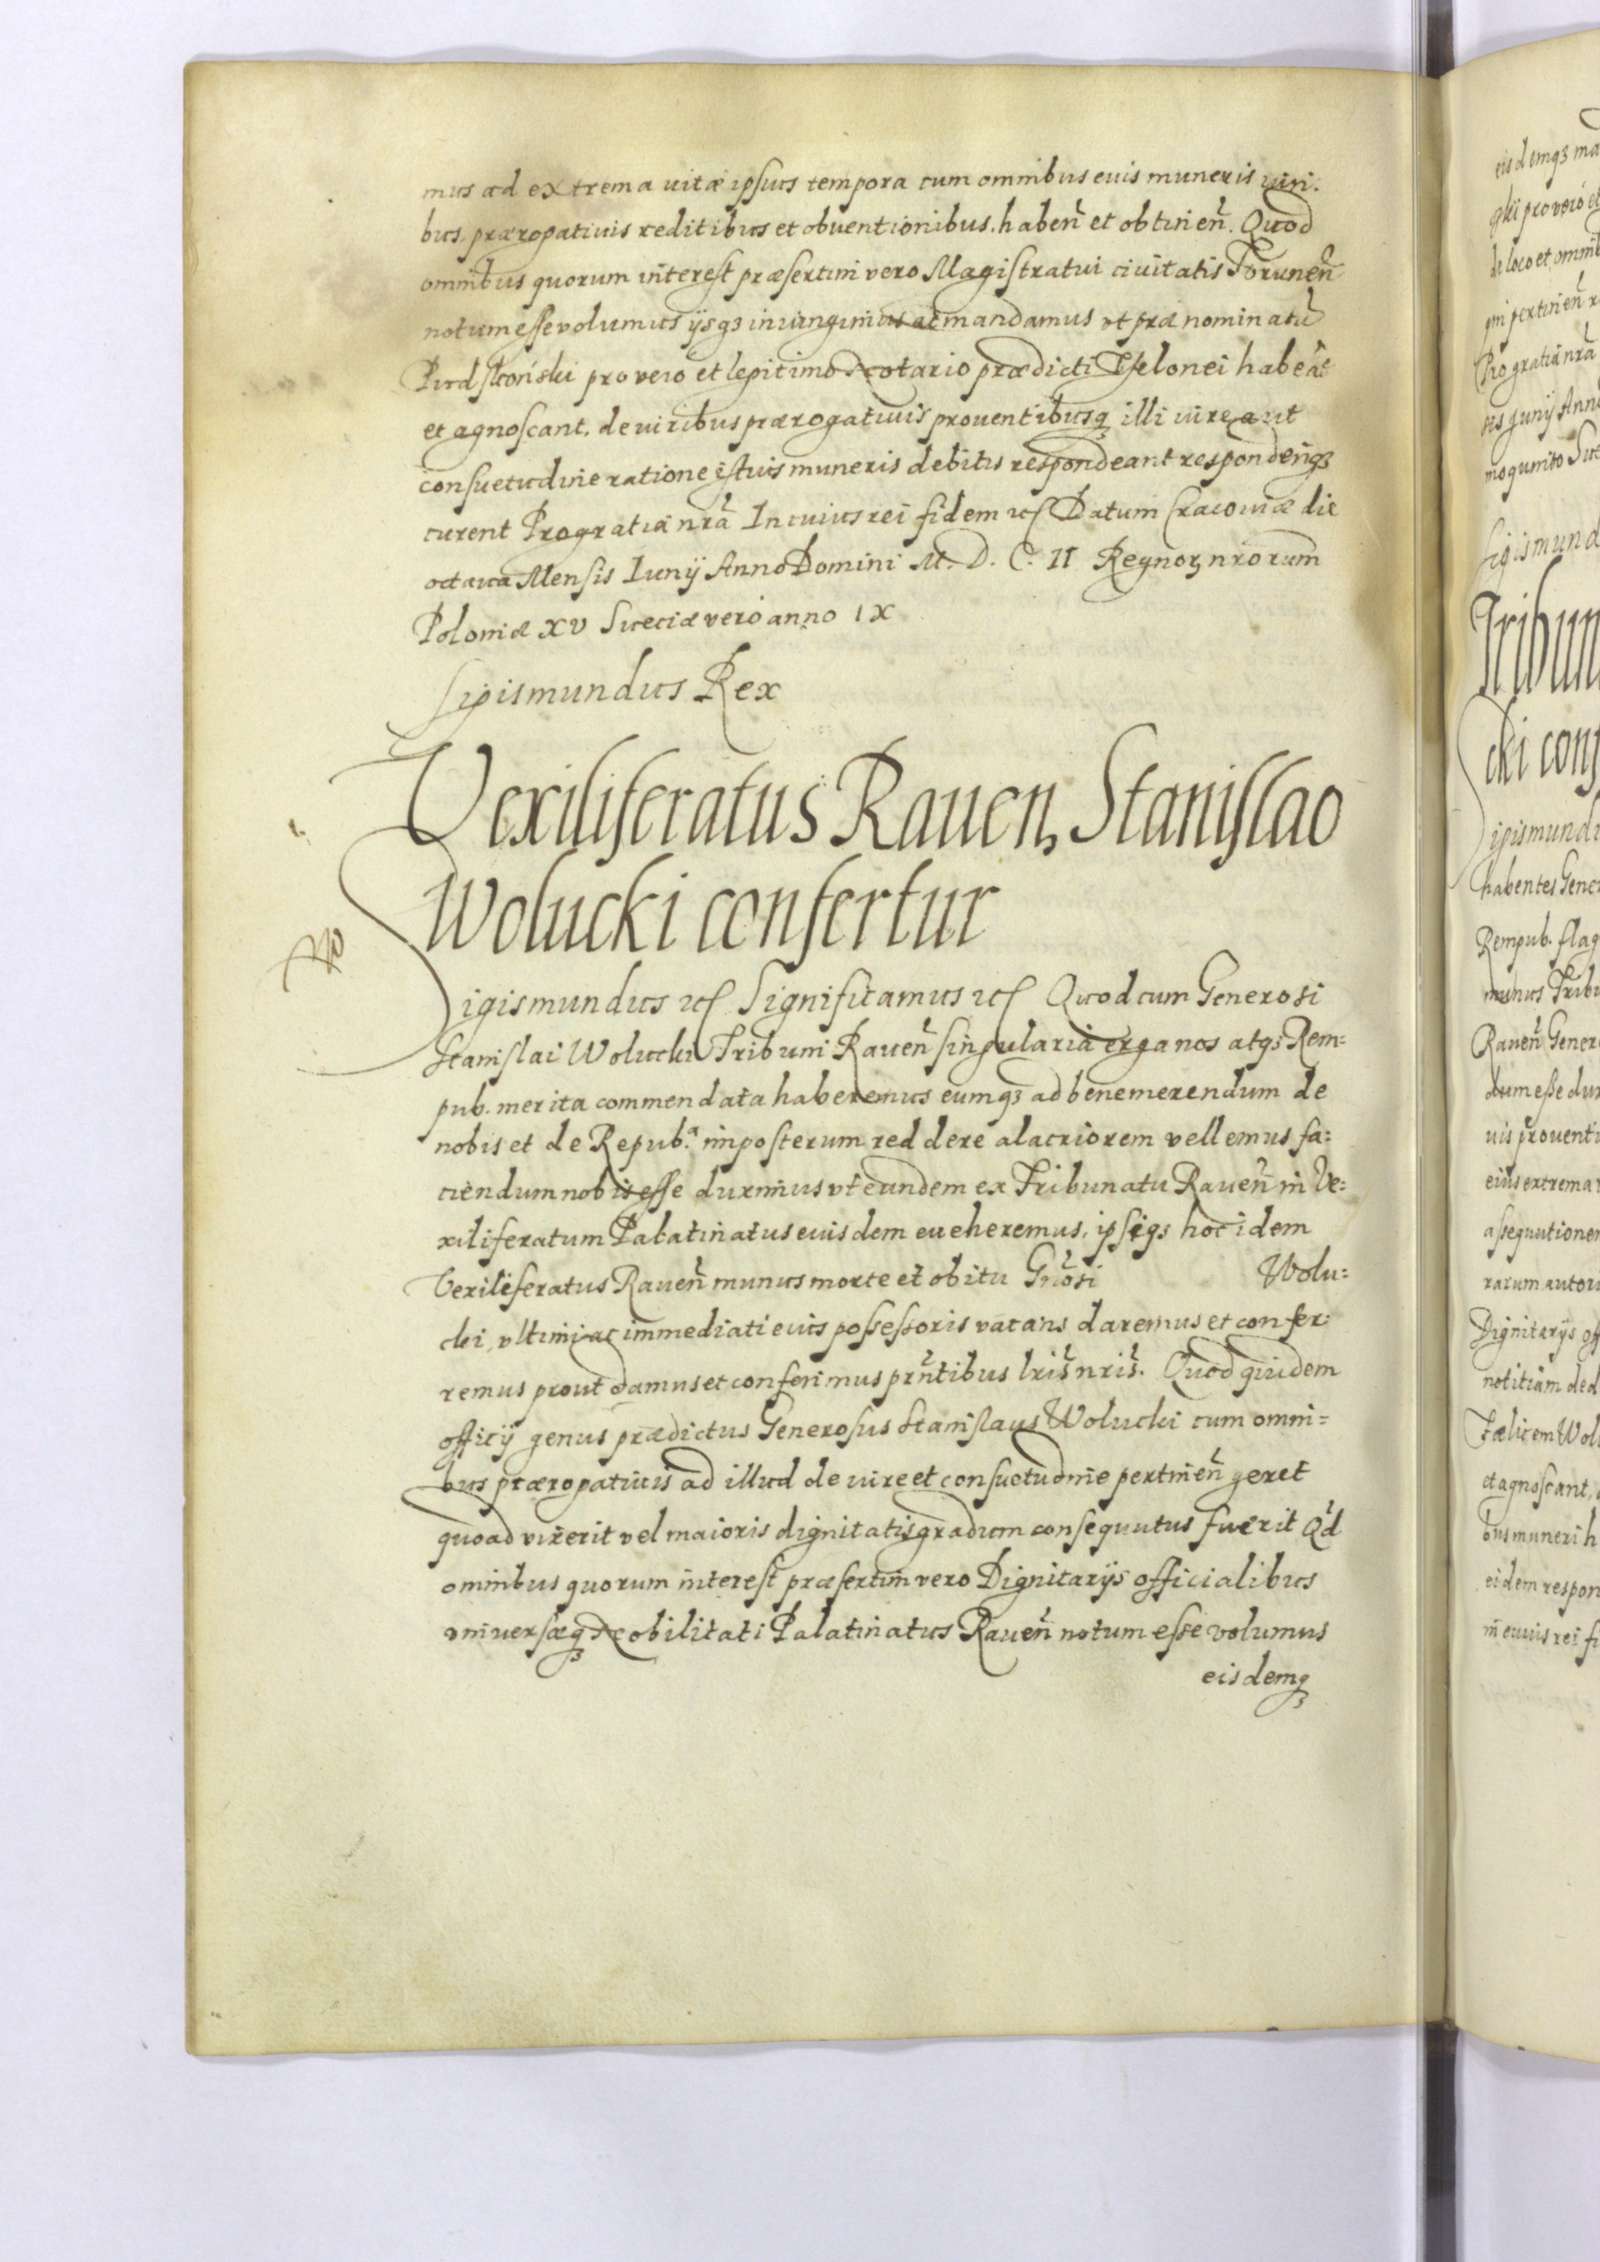 mus ad extrema uitæ ipsius tempora cum omnibus euis muneris iuri:
bus, prærogatiuis reditibus et obuentionibus, habeñ et obtineñ. Quod
omnibus quorum interest præsertim vero Magistratui ciuitatis Toruneñ
notum esse volumus ijsqz iniungimus ac mandamus vt præ nominatũ
pro vero et legitimo Notario prædicti Thelonei habeãt
et agnoscant, de iuribus prærogatiuis prouentibusqz illi iure aut
consuetudine ratione istius muneris debitis respondeant responderiqz
curent Pro gratia nrã In cuius rei fidem etc Datum Cracouiæ die
octaua Mensis Iunij Anno Domini M. D. C. II Regnorz nrorum
Poloniæ XV Sueciæ vero anno IX
Sigismundus Rex
Vexiliferatus Rauen, Stanislao
Wolucki confertur
Sigismundus etc Significamus etc Quod cum Generosi
Stanislai Wolucki Tribuni Raueñ singularia erga nos atqz Rem=
pub. merita commendata haberemus eumqz ad benemerendum de
nobis et de Repub.ª imposterum reddere alacriorem vellemus fa:
ciendum nobis esse duximus vt eundem ex Tribunatu Raueñ in Ve:
xiliferatum Palatinatus euisdem eueheremus, ipsiqz hoc idem
Vexiliferatus Raueñ munus morte et obitu Gñosi Wolu:
cki, vltimi ac immediati euis possessoris vacans daremus et confer:
remus prout damus et conferimus prñtibus lris nris. Quod quidem
officij genus prædictus Generosus Stanislaus Wolucki cum omni=
bus prærogatiuis ad illud de iure et consuetudine pertineñ geret
quoad vixerit vel maioris dignitatis gradum consequutus fuerit Qd
omnibus quorum interest præsertim vero Dignitarijs officialibus
vniuersæqz Nobilitati Palatinatus Raueñ notum esse volumus
eisdemqz